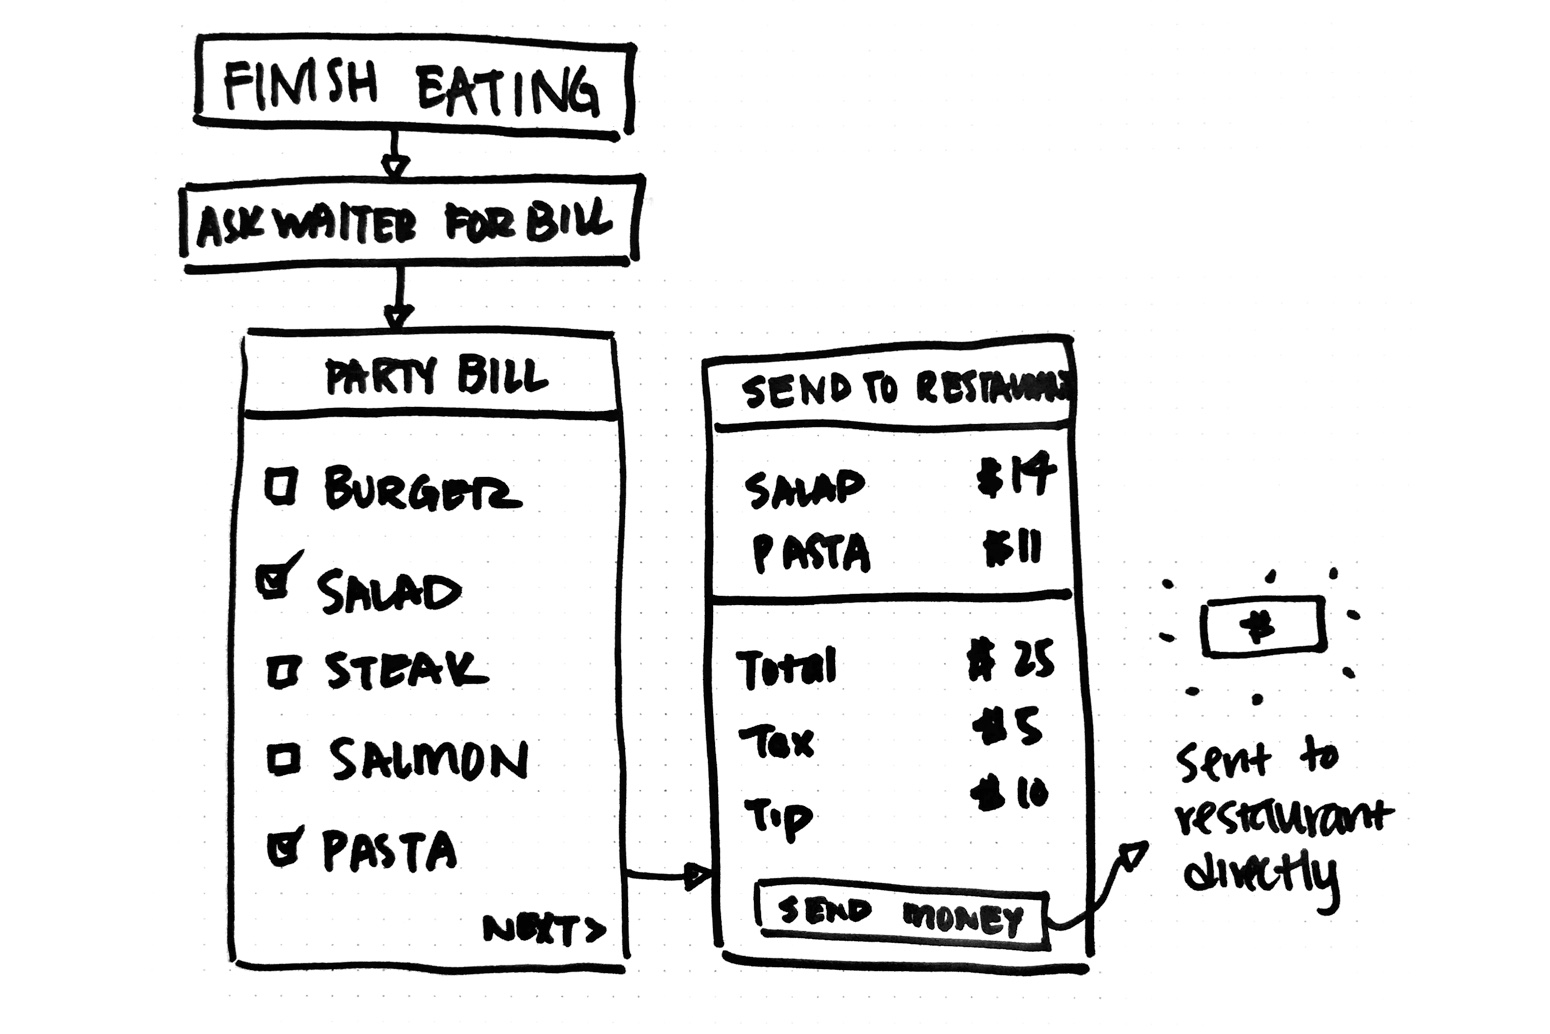 FINISH EATING
ASK WAITER FOR BILL
PARTY BILL
BURGER
SALAD
STEAK
SALMON
PASTA
NEXT >
SEND TO RESTAURANT
SALAD $14
PASTA $11
Total $25
Tax $5
Tip $10
SEND MONEY
$
sent to
restaurant
directly